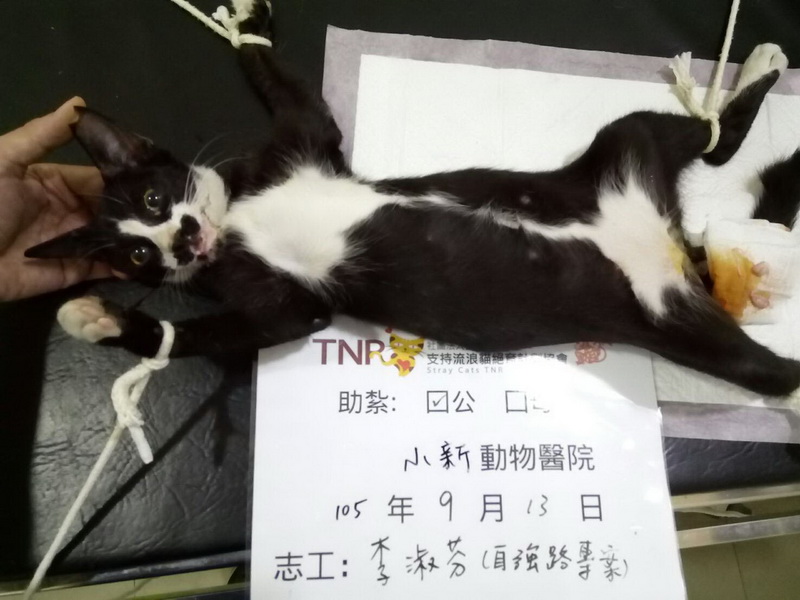 TNR
支持流浪貓絕育計劃協會
Stray Cats TNR
助紮: ☑公 ☐
小新動物醫院
105 年 9 月 13 日
志工: 李淑芬 (自強路專案)